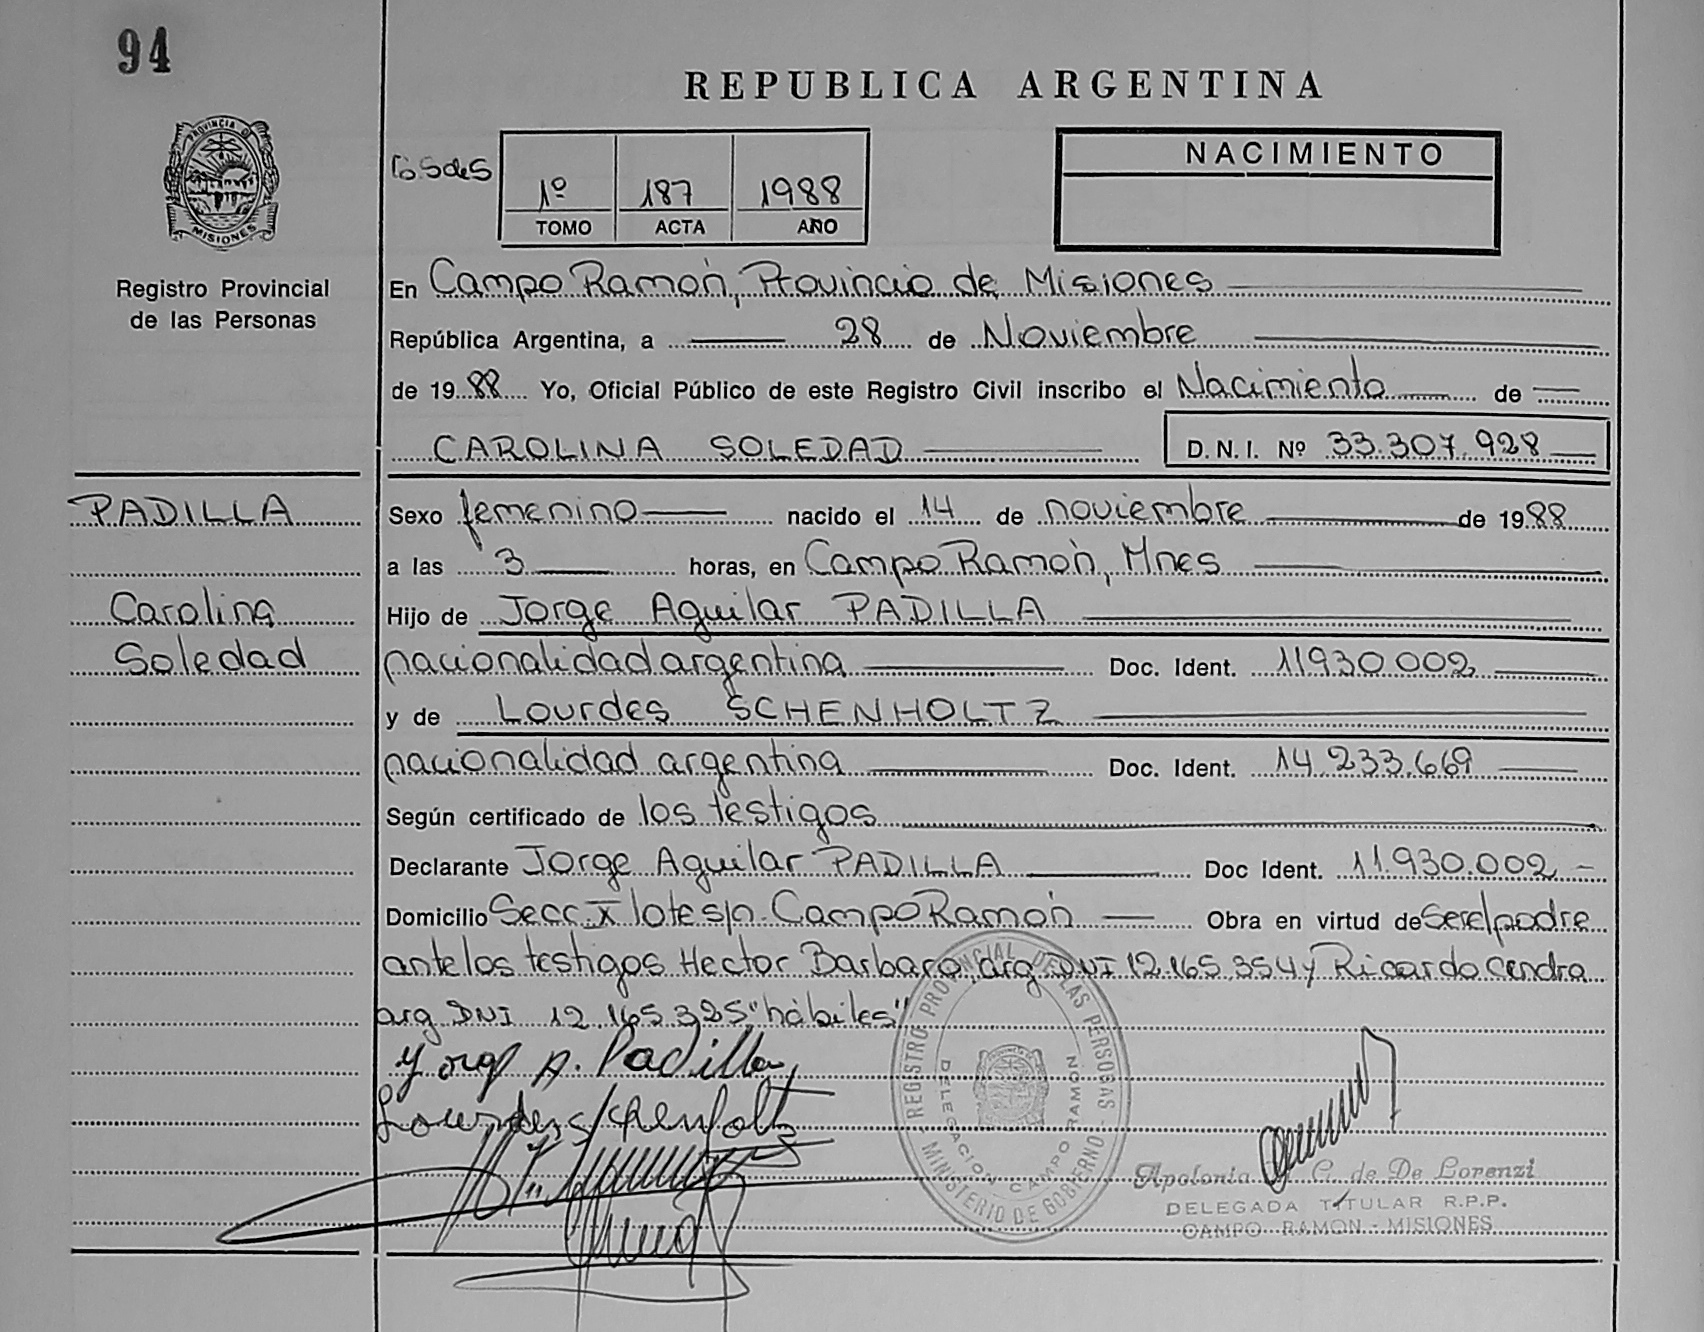 94
REPUBLICA ARGENTINA
PROVINCIA DE
MISIONES
Registro Provincial
de las Personas
1º 187 1988
TOMO ACTA AÑO
NACIMIENTO
En Campo Ramón, Provincia de Misiones
República Argentina, a 28 de Noviembre
de 1988 Yo, Oficial Público de este Registro Civil inscribo el Nacimiento de
CAROLINA SOLEDAD D. N. I. Nº 33.307.928
PADILLA
Carolina
Soledad
Sexo femenino nacido el 14 de noviembre de 1988
a las 3 horas, en Campo Ramón, Mnes
Hijo de Jorge Aguilar PADILLA
nacionalidad argentina Doc. Ident. 11930.002
y de Lourdes SCHENHOLTZ
nacionalidad argentina Doc. Ident. 14.233.669
Según certificado de los testigos
Declarante Jorge Aguilar PADILLA Doc Ident. 11.930.002
Domicilio Secc. X lote s/n. Campo Ramón Obra en virtud de ser el padre
ante los testigos Hector Barbaro, arg DNI 12.165.354 y Ricardo Cendra
arg DNI 12.165.325 "hábiles"
Jorge A. Padilla
Lourdes Schenholtz
REGISTRO PROVINCIAL DE LAS PERSONAS - MINISTERIO DE GOBIERNO
DELEGACION CAMPO RAMON
Apolonia C. de De Lorenzi
DELEGADA TITULAR R.P.P.
CAMPO RAMON - MISIONES